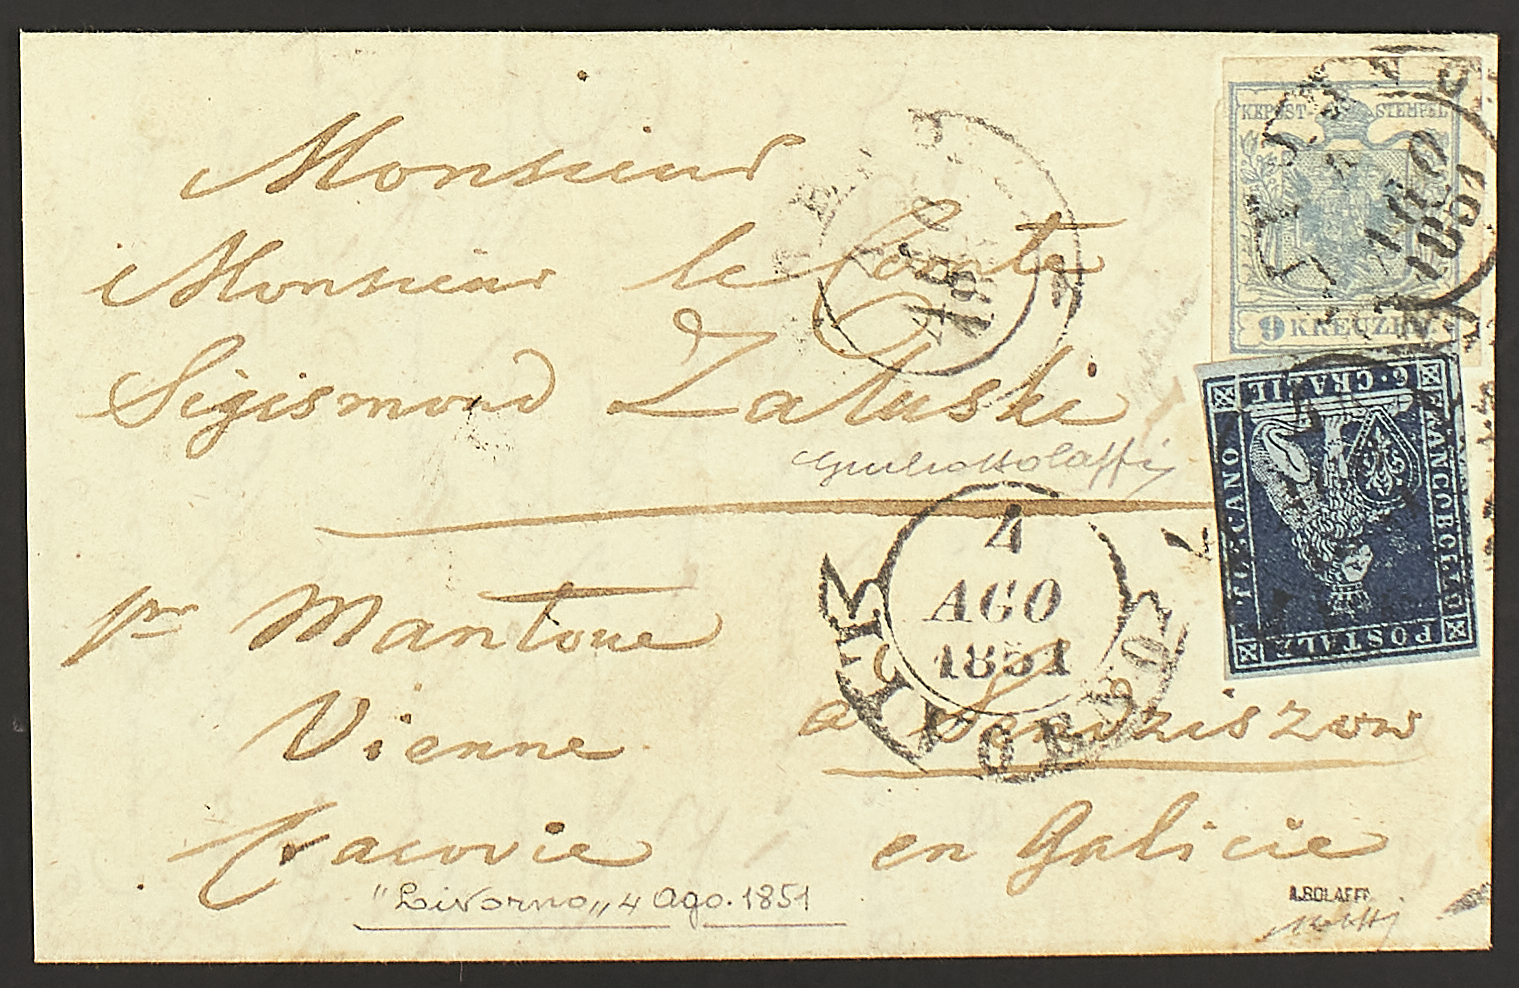 Monsieur
Monsieur le Comte
Sigismond Zaluski
pr Mantoue
Vienne
Cracovie
a Sendziszow
en Galicie
KKPOST-STEMPEL
9 KREUZER
FRANCOBOLLO
POSTALE
TOSCANO
6·CRAZIE
LIVORNO
4
AGO
1851
AGO
1851
"Livorno„ 4 Ago. 1851
A.BOLAFFI